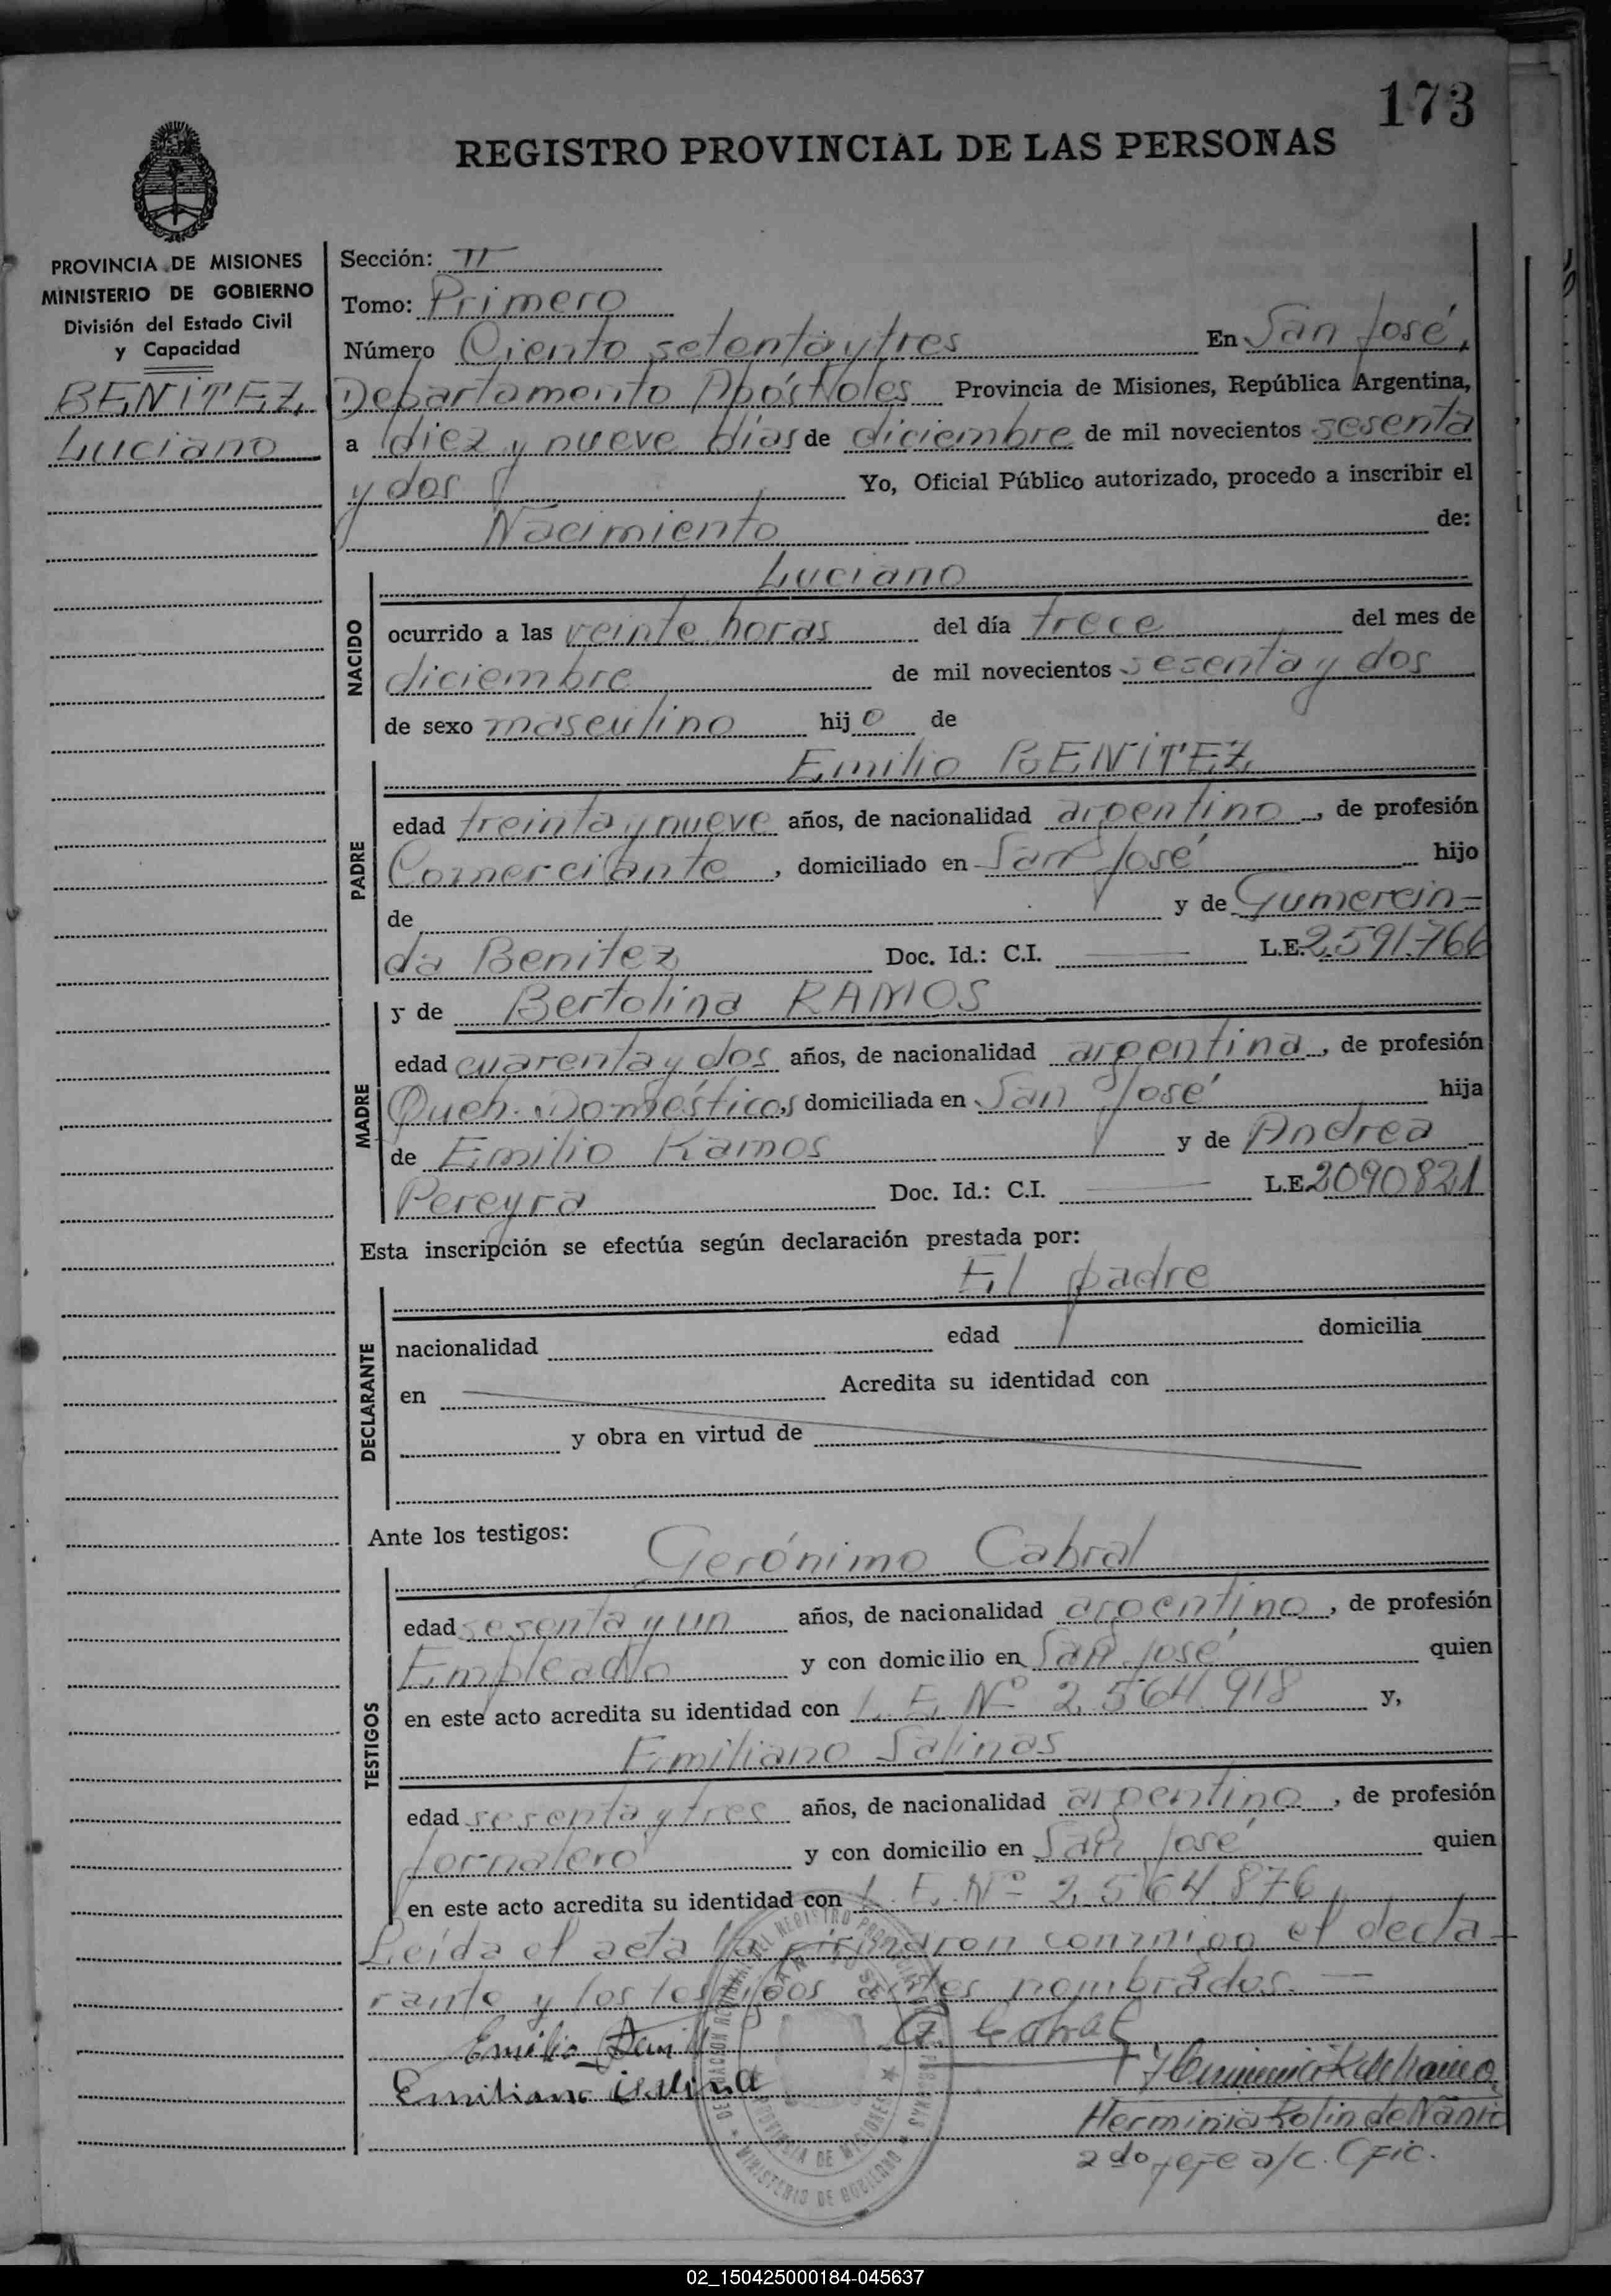 173
REGISTRO PROVINCIAL DE LAS PERSONAS
PROVINCIA DE MISIONES
MINISTERIO DE GOBIERNO
División del Estado Civil
y Capacidad
BENITEZ
Luciano
Sección: II
Tomo: Primero
Número Ciento setenta y tres En San José,
Departamento Apóstoles Provincia de Misiones, República Argentina,
a diez y nueve días de diciembre de mil novecientos sesenta
y dos Yo, Oficial Público autorizado, procedo a inscribir el
Nacimiento de:
NACIDO
Luciano
ocurrido a las veinte horas del día trece del mes de
diciembre de mil novecientos sesenta y dos
de sexo masculino hijo de
PADRE
Emilio BENITEZ
edad treinta y nueve años, de nacionalidad argentino, de profesión
Comerciante, domiciliado en San José hijo
de y de Gumercin-
da Benitez Doc. Id.: C.I. L.E. 2.591.766
MADRE
y de Bertolina RAMOS
edad cuarenta y dos años, de nacionalidad argentina, de profesión
Queh. Domésticos, domiciliada en San José hija
de Emilio Ramos y de Andrea
Pereyra Doc. Id.: C.I. L.E. 2090821
Esta inscripción se efectúa según declaración prestada por:
DECLARANTE
El padre
nacionalidad edad domicilia
en Acredita su identidad con
y obra en virtud de
Ante los testigos:
TESTIGOS
Gerónimo Cabral
edad sesenta y un años, de nacionalidad argentino, de profesión
Empleado y con domicilio en San José quien
en este acto acredita su identidad con L.E. Nº 2.564.918 y,
Emiliano Salinas
edad sesenta y tres años, de nacionalidad argentino, de profesión
Jornalero y con domicilio en San José quien
en este acto acredita su identidad con L.E. Nº 2.564.876
Leída el acta la firmaron conmigo el decla-
rante y los testigos antes nombrados.
Emilio G. Cabral
Emiliano
Herminia Rolin de
2do jefe a/c. Ofic.
PROVINCIA DE MISIONES
MINISTERIO DE GOBIERNO
02_150425000184-045637